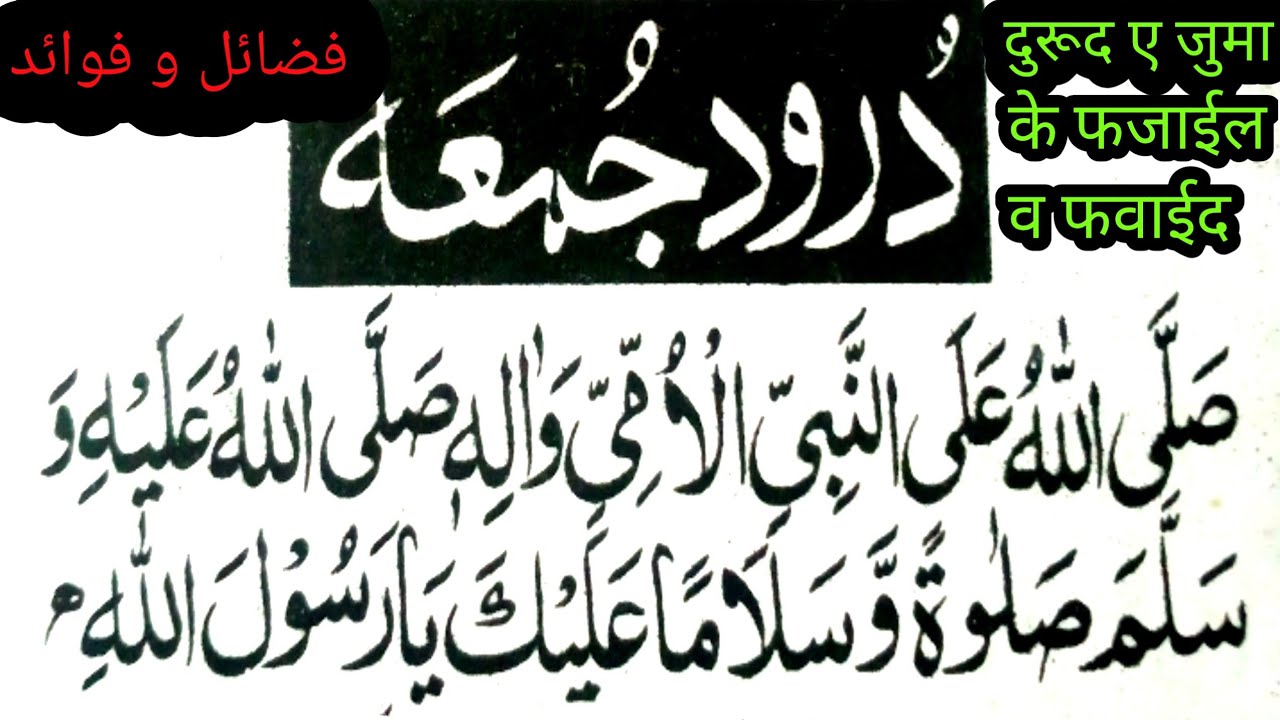 فضائل و فوائد
دُرود جُمعَہ
दुरूद ए जुमा
के फजाईल
व फवाईद
صَلَّى اللّٰهُ عَلَى النَّبِيِّ الْاُمِّيِّ وَاٰلِهٖ صَلَّى اللّٰهُ عَلَيْهِ وَ
سَلَّمَ صَلٰوةً وَّ سَلَامًا عَلَيْكَ يَا رَسُوْلَ اللّٰهِ ؕ